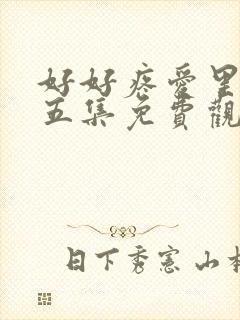 好好疼愛里
五集免費觀
日下秀憲 山本